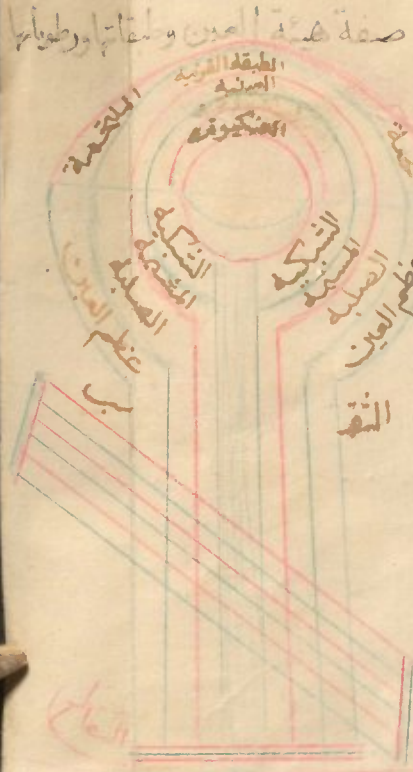 صفة هيئة العين وطبقاتها ورطوباتها
الطبقة القرنية
العنبية
العنكبوتية
الملتحمة
الشبكية
المشيمية
الصلبة
عظم العين
الشبكية
المشيمية
الصلبة
عظم العين